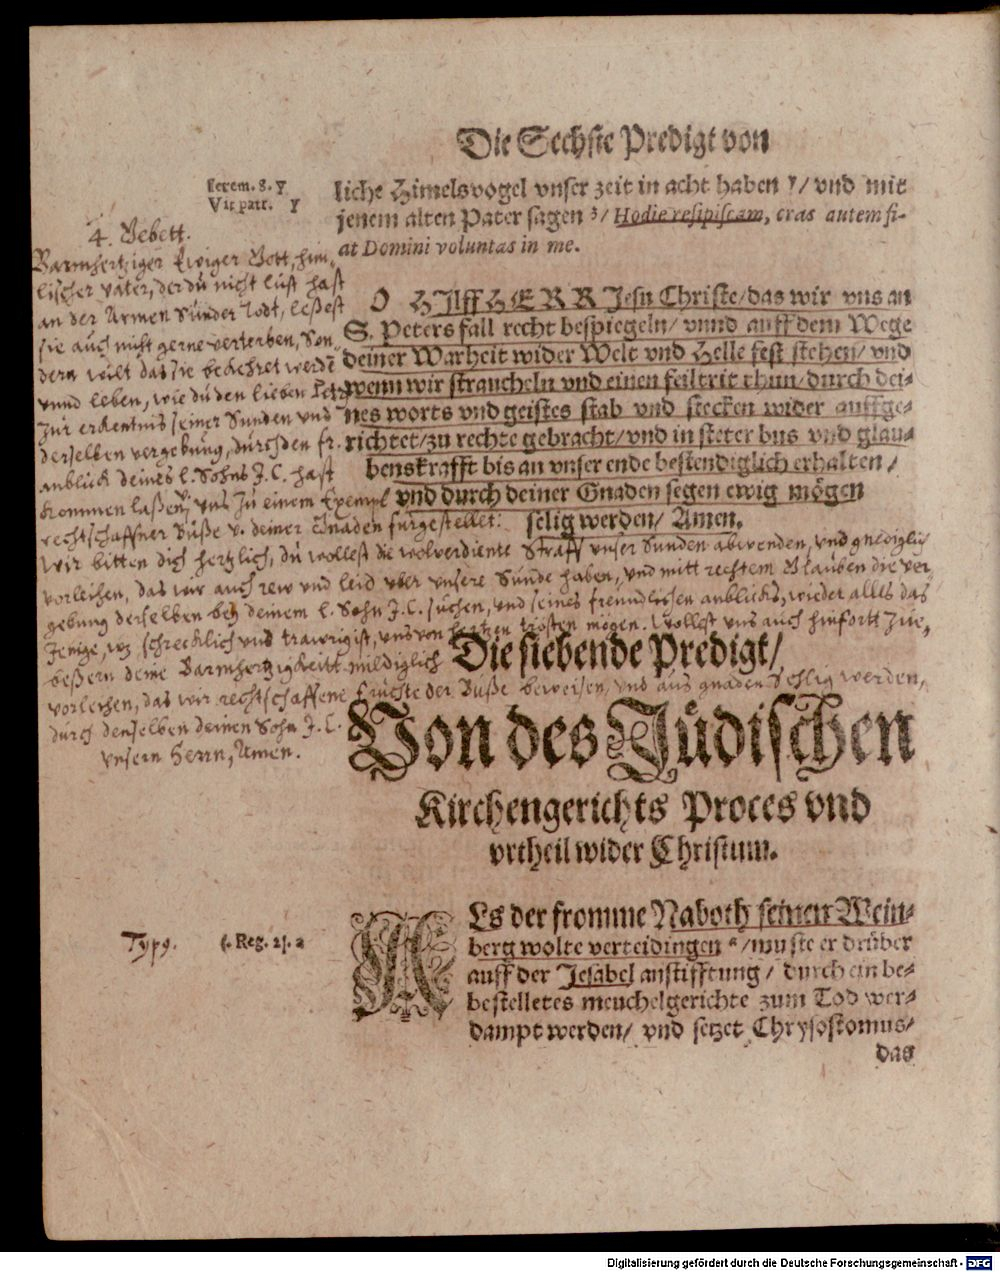 Die Sechste Predigt von
Ierem. 8. 7
Vit patr.
liche Himelsvogel vnser zeit in acht haben y/ vnd mit
jenem alten Pater sagen z/ Hodie resipiscam, cras autem fi-
at Domini voluntas in me.
4. Gebett.
Barmhertziger Ewiger Gott, him-
lischer vater, der du nicht lust hast
an der Armen Sünder Todt, leßest
sie auch nicht gerne verterben, Son-
dern wilt das sie bekehret werdē
vnnd leben, wie du den lieben Petr
zur erkentnis seiner Sunden vnd
derselben vergebung, durch den fr.
anblick deines l. Sohns J. C. hast
kommen laßen, vns zu einem Exempel
rechtschaffner Buße v. deiner Gnaden furgestellet:
Wir bitten dich hertzlich, du wollest die wolverdiente Straff vnser Sunden abwenden, vnd gnediglich
vorleihen, das wir auch rew vnd leid vber vnsere Sunde haben, vnd mitt rechtem Glauben die ver-
gebung derselben bey deinem l. Sohn J. C. suchen, vnd seines freundlichen anblicks, wieder alles das
Jenige, wz schrecklich vnd trawrig ist, vns von hertzen trösten mogen. Wollest vns auch hinfortt zue,
beßern deine Barmhertzigkeitt mildiglich
vorleihen, das wir rechtschaffene Fruchte der Buße beweisen, vnd aus gnaden Sehlig werden,
durch denselben deinen Sohn J. C.
vnsern Herrn, Amen.
O HJlff HERR Jesu Christe/ das wir vns an
S. Peters fall recht bespiegeln/ vnnd auff dem Wege
deiner Warheit wider Welt vnd Helle fest stehen/ vnd
wenn wir straucheln vnd einen feiltrit thun/ durch dei-
nes worts vnd geistes stab vnd stecken wider auffge-
richtet/ zu rechte gebracht/ vnd in steter bus vnd glau-
benskrafft bis an vnser ende bestendiglich erhalten/
vnd durch deiner Gnaden segen ewig mögen
selig werden/ Amen.
Die siebende Predigt/
Von des Jüdischen
Kirchengerichts Proces vnd
vrtheil wider Christum.
Typ9.
1. Reg. 21. a
ALs der fromme Naboth seinen Wein-
berg wolte verteidingen a/ muste er drüber
auff der Jesabel anstifftung/ durch ein be-
bestelletes meuchelgerichte zum Tod ver-
dampt werden/ vnd setzet Chrysostomus/
das
Digitalisierung gefördert durch die Deutsche Forschungsgemeinschaft - DFG